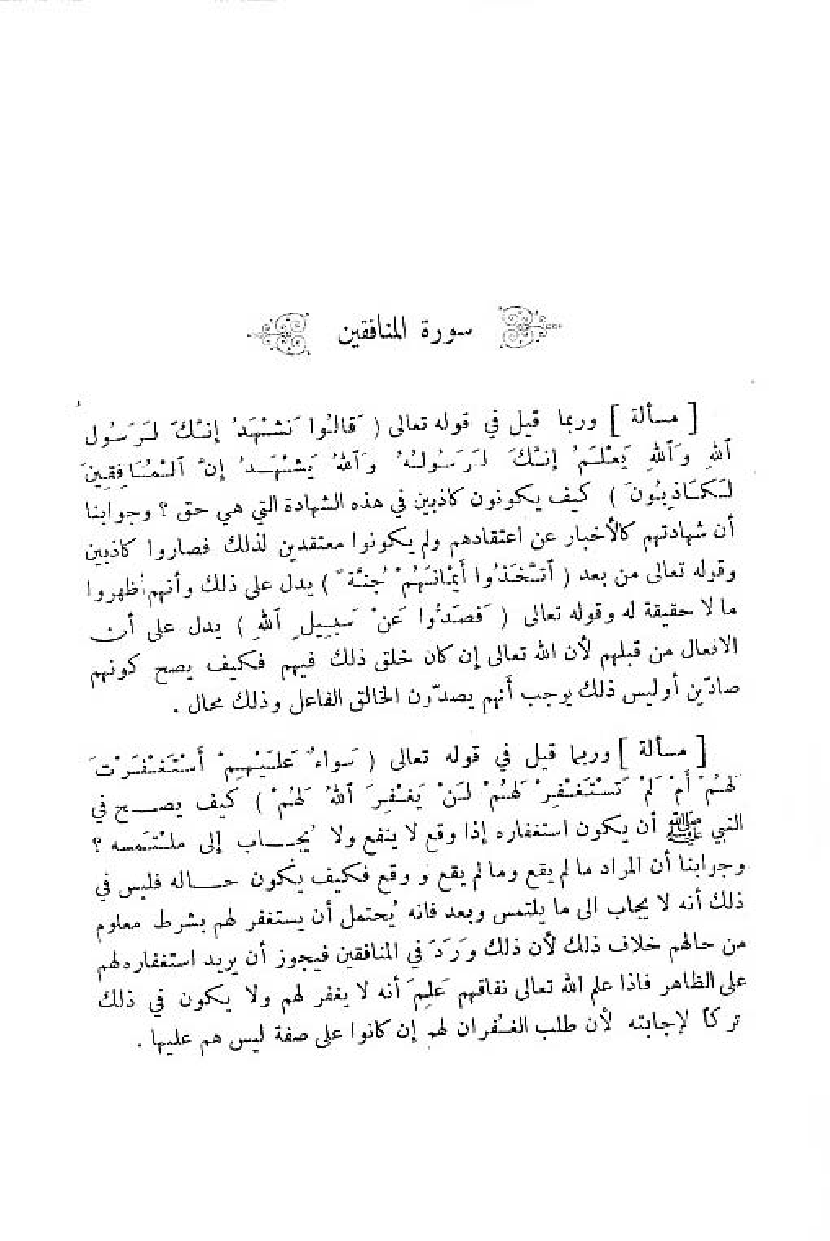 سورة المنافقين
[ مسألة ] وربما قيل في قوله تعالى ( قَالُوا نَشْهَدُ إِنَّكَ لَرَسُولُ
اللهِ وَاللهُ يَعْلَمُ إِنَّكَ لَرَسُولُهُ وَاللهُ يَشْهَدُ إِنَّ الْمُنَافِقِينَ
لَكَاذِبُونَ ) كيف يكونون كاذبين في هذه الشهادة التي هي حق ؟ وجوابنا
أن شهادتهم كالأخبار عن اعتقادهم ولم يكونوا معتقدين لذلك فصاروا كاذبين
وقوله تعالى من بعد ( اتَّخَذُوا أَيْمَانَهُمْ جُنَّةً ) يدل على ذلك وأنهم أظهروا
ما لا حقيقة له وقوله تعالى ( فَصَدُّوا عَنْ سَبِيلِ اللهِ ) يدل على أن
الافعال من قبلهم لأن الله تعالى إن كان خلق ذلك فيهم فكيف يصح كونهم
صادّين أوليس ذلك يوجب أنهم يصدّون الخالق الفاعل وذلك محال .
[ مسألة ] وربما قيل في قوله تعالى ( سَواءٌ عَلَيْهِمْ أَسْتَغْفَرْتَ
لَهُمْ أَمْ لَمْ تَسْتَغْفِرْ لَهُمْ لَنْ يَغْفِرَ اللهُ لَهُمْ ) كيف يصح في
النبي ﷺ أن يكون استغفاره إذا وقع لا ينفع ولا يُجاب إلى ملتمسه ؟
وجرابنا أن المراد ما لم يقع وما لم يقع و وقع فكيف يكون حاله فليس في
ذلك أنه لا يجاب الى ما يلتمس وبعد فانه يُحتمل أن يستغفر لهم بشرط معلوم
من حالهم خلاف ذلك لأن ذلك وَرَدَ في المنافقين فيجوز أن يريد استغفاره لهم
على الظاهر فاذا علم الله تعالى نفاقهم عَلِمَ أنه لا يغفر لهم ولا يكون في ذلك
تركاً لإجابته لأن طلب الغُفران لهم إن كانوا على صفة ليس هم عليها .